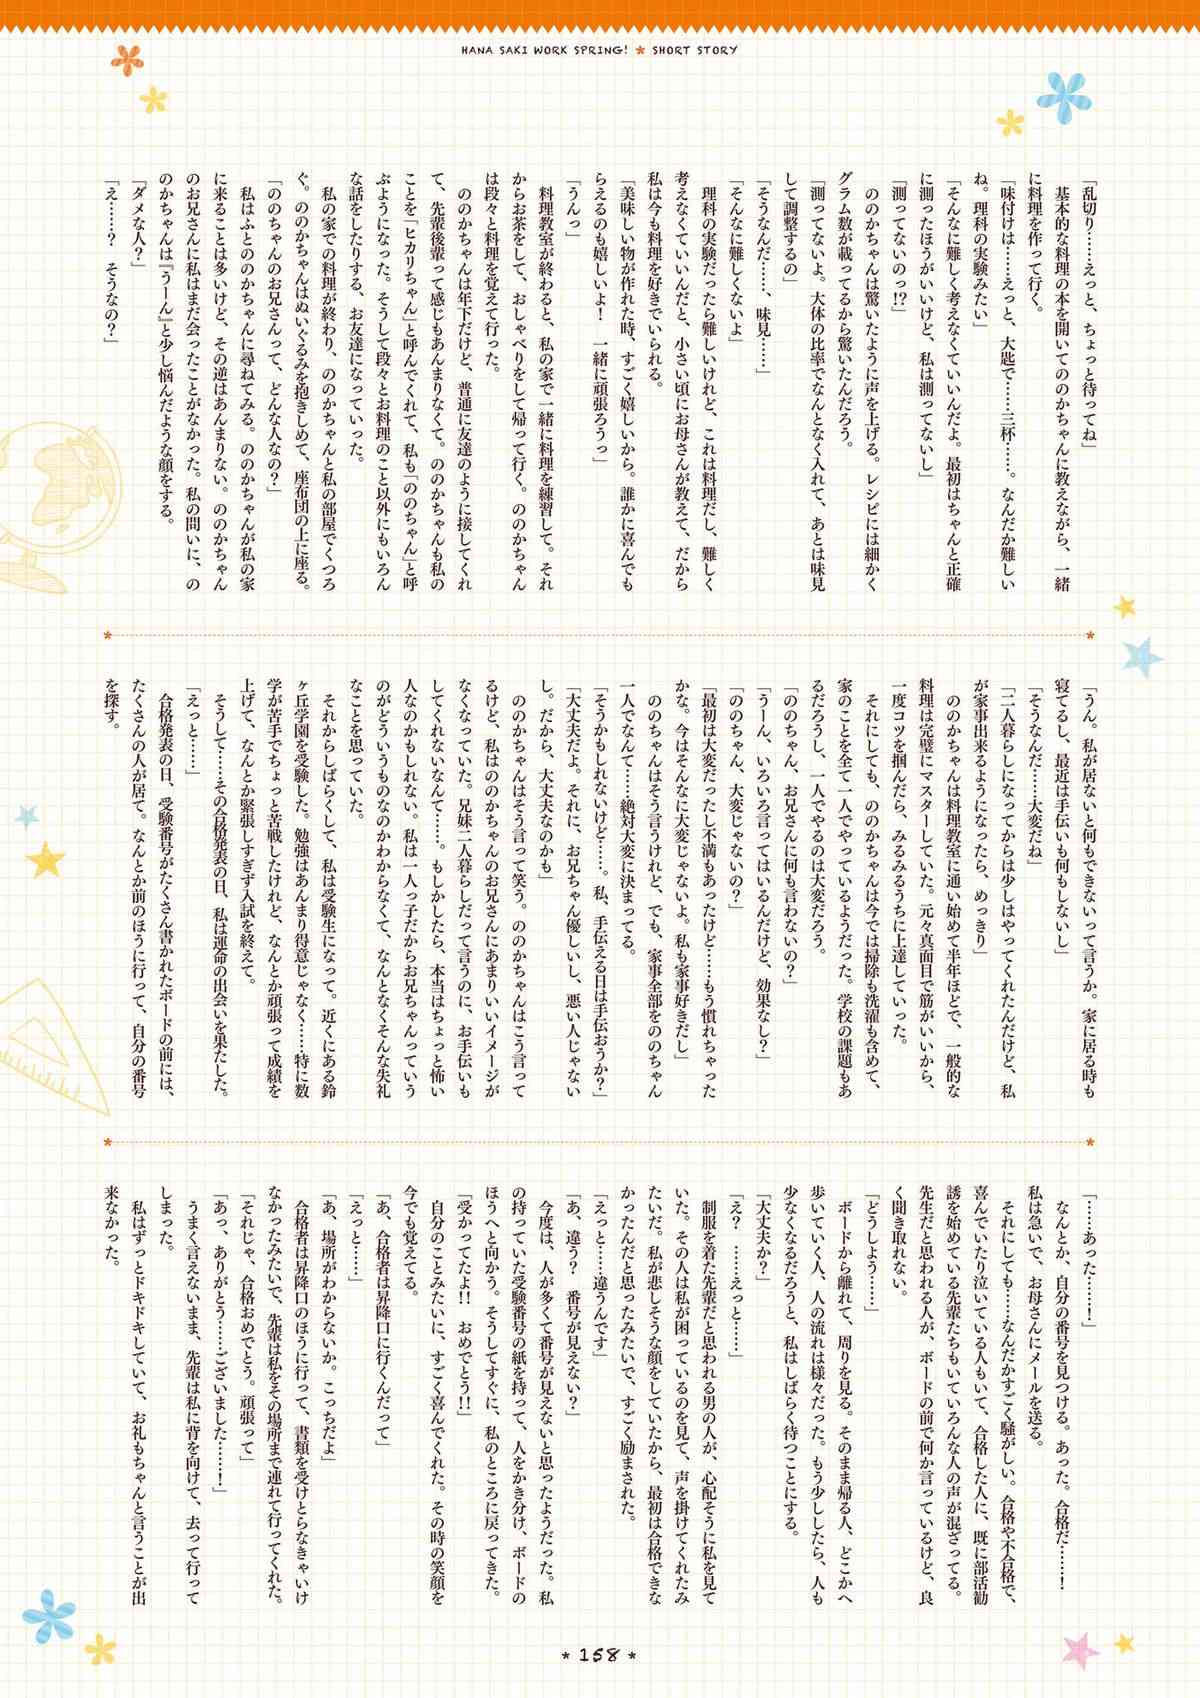 HANA SAKI WORK SPRING! * SHORT STORY
「乱切り……えっと、ちょっと待ってね」
　基本的な料理の本を開いてののかちゃんに教えながら、一緒
に料理を作って行く。
「味付けは……えっと、大匙で……三杯……。なんだか難しい
ね。理科の実験みたい」
「そんなに難しく考えなくていいんだよ。最初はちゃんと正確
に測ったほうがいいけど、私は測ってないし」
「測ってないのっ!?」
　ののかちゃんは驚いたように声を上げる。レシピには細かく
グラム数が載ってるから驚いたんだろう。
「測ってないよ。大体の比率でなんとなく入れて、あとは味見
して調整するの」
「そうなんだ……、味見……」
「そんなに難しくないよ」
　理科の実験だったら難しいけれど、これは料理だし、難しく
考えなくていいんだと、小さい頃にお母さんが教えて、だから
私は今も料理を好きでいられる。
「美味しい物が作れた時、すごく嬉しいから。誰かに喜んでも
らえるのも嬉しいよ！　一緒に頑張ろうっ」
「うんっ」
　料理教室が終わると、私の家で一緒に料理を練習して。それ
からお茶をして、おしゃべりをして帰って行く。ののかちゃん
は段々と料理を覚えて行った。
　ののかちゃんは年下だけど、普通に友達のように接してくれ
て、先輩後輩って感じもあんまりなくて。ののかちゃんも私の
ことを「ヒカリちゃん」と呼んでくれて、私も「ののちゃん」と呼
ぶようになった。そうして段々とお料理のこと以外にもいろん
な話をしたりする、お友達になっていった。
　私の家での料理が終わり、ののかちゃんと私の部屋でくつろ
ぐ。ののかちゃんはぬいぐるみを抱きしめて、座布団の上に座る。
「ののちゃんのお兄さんって、どんな人なの？」
　私はふとののかちゃんに尋ねてみる。ののかちゃんが私の家
に来ることは多いけど、その逆はあんまりない。ののかちゃん
のお兄さんに私はまだ会ったことがなかった。私の問いに、の
のかちゃんは『うーん』と少し悩んだような顔をする。
「ダメな人？」
「え……？　そうなの？」
「うん。私が居ないと何もできないって言うか。家に居る時も
寝てるし、最近は手伝いも何もしないし」
「そうなんだ……大変だね」
「二人暮らしになってからは少しはやってくれたんだけど、私
が家事出来るようになったら、めっきり」
　ののかちゃんは料理教室に通い始めて半年ほどで、一般的な
料理は完璧にマスターしていた。元々真面目で筋がいいから、
一度コツを掴んだら、みるみるうちに上達していった。
　それにしても、ののかちゃんは今では掃除も洗濯も含めて、
家のことを全て一人でやっているようだった。学校の課題もあ
るだろうし、一人でやるのは大変だろう。
「ののちゃん、お兄さんに何も言わないの？」
「うーん、いろいろ言ってはいるんだけど、効果なし？」
「ののちゃん、大変じゃないの？」
「最初は大変だったし不満もあったけど……もう慣れちゃった
かな。今はそんなに大変じゃないよ。私も家事好きだし」
　ののちゃんはそう言うけれど、でも、家事全部をののちゃん
一人でなんて……絶対大変に決まってる。
「そうかもしれないけど……。私、手伝える日は手伝おうか？」
「大丈夫だよ。それに、お兄ちゃん優しいし、悪い人じゃない
し。だから、大丈夫なのかも」
　ののかちゃんはそう言って笑う。ののかちゃんはこう言って
るけど、私はののかちゃんのお兄さんにあまりいいイメージが
なくなっていた。兄妹二人暮らしだって言うのに、お手伝いも
してくれないなんて……。もしかしたら、本当はちょっと怖い
人なのかもしれない。私は一人っ子だからお兄ちゃんっていう
のがどういうものなのかわからなくて、なんとなくそんな失礼
なことを思っていた。
　それからしばらくして、私は受験生になって。近くにある鈴
ヶ丘学園を受験した。勉強はあんまり得意じゃなく……特に数
学が苦手でちょっと苦戦したけれど、なんとか頑張って成績を
上げて、なんとか緊張しすぎず入試を終えて。
　そうして……その合格発表の日、私は運命の出会いを果たした。
「えっと……」
　合格発表の日、受験番号がたくさん書かれたボードの前には、
たくさんの人が居て。なんとか前のほうに行って、自分の番号
を探す。
「……あった……！」
　なんとか、自分の番号を見つける。あった。合格だ……！
私は急いで、お母さんにメールを送る。
　それにしても……なんだかすごく騒がしい。合格や不合格で、
喜んでいたり泣いている人もいて、合格した人に、既に部活勧
誘を始めている先輩たちもいていろんな人の声が混ざってる。
先生だと思われる人が、ボードの前で何か言っているけど、良
く聞き取れない。
「どうしよう……」
　ボードから離れて、周りを見る。そのまま帰る人、どこかへ
歩いていく人、人の流れは様々だった。もう少ししたら、人も
少なくなるだろうと、私はしばらく待つことにする。
「大丈夫か？」
「え？　……えっと……」
　制服を着た先輩だと思われる男の人が、心配そうに私を見て
いた。その人は私が困っているのを見て、声を掛けてくれたみ
たいだ。私が悲しそうな顔をしていたから、最初は合格できな
かったんだと思ったみたいで、すごく励まされた。
「えっと……違うんです」
「あ、違う？　番号が見えない？」
　今度は、人が多くて番号が見えないと思ったようだった。私
の持っていた受験番号の紙を持って、人をかき分け、ボードの
ほうへと向かう。そうしてすぐに、私のところに戻ってきた。
「受かってたよ!!　おめでとう!!」
　自分のことみたいに、すごく喜んでくれた。その時の笑顔を
今でも覚えてる。
「あ、合格者は昇降口に行くんだって」
「えっと……」
「あ、場所がわからないか。こっちだよ」
　合格者は昇降口のほうに行って、書類を受けとらなきゃいけ
なかったみたいで、先輩は私をその場所まで連れて行ってくれた。
「それじゃ、合格おめでとう。頑張って」
「あっ、ありがとう……ございました……！」
　うまく言えないまま、先輩は私に背を向けて、去って行って
しまった。
　私はずっとドキドキしていて、お礼もちゃんと言うことが出
来なかった。
* 158 *